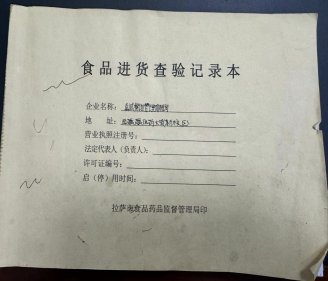 食品进货查验记录本
企业名称：
地 址：
营业执照注册号：
法定代表人（负责人）：
许可证编号：
启（停）用时间：
拉萨市食品药品监督管理局印